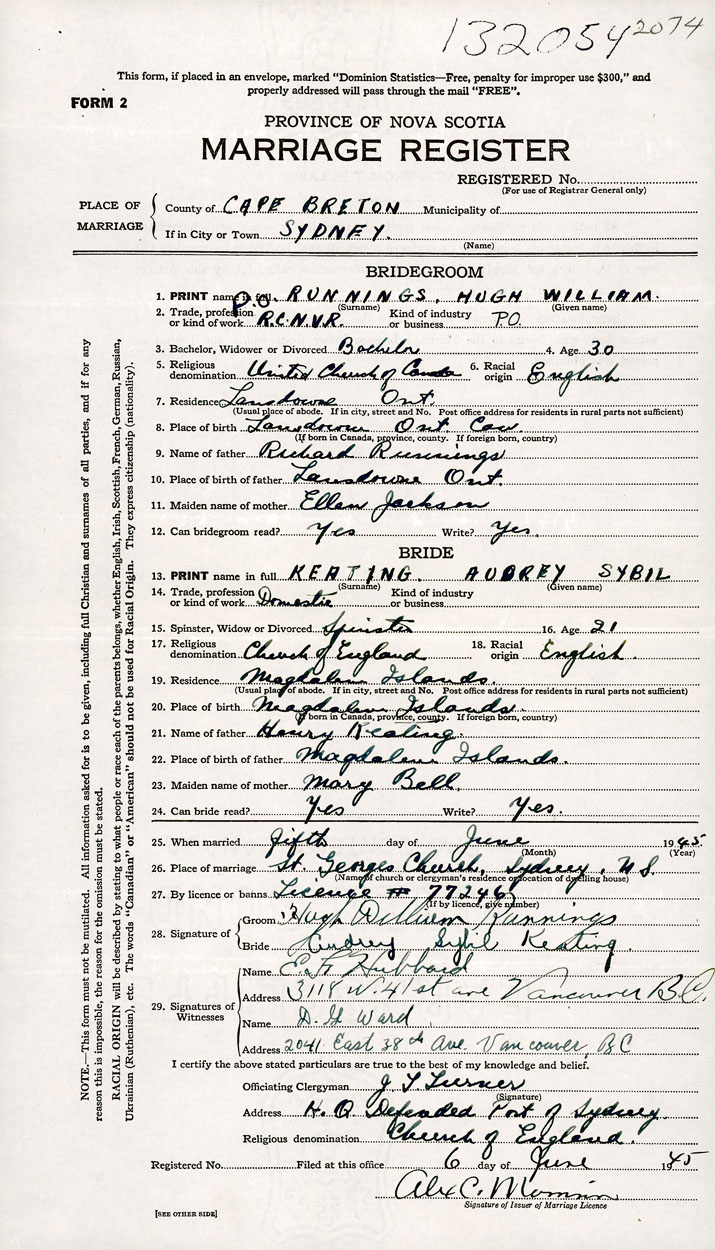 132054 2074
This form, if placed in an envelope, marked “Dominion Statistics—Free, penalty for improper use $300,” and
properly addressed will pass through the mail “FREE”.
FORM 2
PROVINCE OF NOVA SCOTIA
MARRIAGE REGISTER
REGISTERED No.
(For use of Registrar General only)
PLACE OF MARRIAGE
County of CAPE BRETON Municipality of
If in City or Town SYDNEY.
(Name)
BRIDEGROOM
1. PRINT name in full RUNNINGS, HUGH WILLIAM.
(Surname) (Given name)
2. Trade, profession or kind of work P.O. R.C.N.V.R. Kind of industry or business P.O.
3. Bachelor, Widower or Divorced Bachelor 4. Age 30
5. Religious denomination United Church of Canada 6. Racial origin English
7. Residence Lansdowne Ont.
(Usual place of abode. If in city, street and No. Post office address for residents in rural parts not sufficient)
8. Place of birth Lansdowne Ont Can.
(If born in Canada, province, county. If foreign born, country)
9. Name of father Richard Runnings
10. Place of birth of father Lansdowne Ont.
11. Maiden name of mother Ellen Jackson
12. Can bridegroom read? Yes Write? Yes.
BRIDE
13. PRINT name in full KEATING. AUDREY SYBIL
(Surname) (Given name)
14. Trade, profession or kind of work Domestic Kind of industry or business
15. Spinster, Widow or Divorced Spinster 16. Age 21
17. Religious denomination Church of England 18. Racial origin English.
19. Residence Magdalen Islands.
(Usual place of abode. If in city, street and No. Post office address for residents in rural parts not sufficient)
20. Place of birth Magdalen Islands.
(If born in Canada, province, county. If foreign born, country)
21. Name of father Henry Keating.
22. Place of birth of father Magdalen Islands.
23. Maiden name of mother Mary Bell.
24. Can bride read? Yes Write? Yes.
25. When married fifth day of June 1945
(Month) (Year)
26. Place of marriage St. Georges Church, Sydney, N.S.
(Name of church or clergyman's residence or location of dwelling house)
27. By licence or banns Licence # 77246
(If by licence, give number)
28. Signature of
Groom Hugh William Runnings
Bride Audrey Sybil Keating
29. Signatures of Witnesses
Name Hubbard
Address 3118 W. 41st ave Vancouver B.C.
Name D. G. Ward
Address 2041 East 38th Ave. Vancouver, BC
I certify the above stated particulars are true to the best of my knowledge and belief.
Officiating Clergyman Turner
(Signature)
Address H.Q. Defended Port of Sydney
Religious denomination Church of England.
Registered No. Filed at this office 6 day of June 1945
Alex C.
Signature of Issuer of Marriage Licence
[SEE OTHER SIDE]
NOTE.—This form must not be mutilated. All information asked for is to be given, including full Christian and surnames of all parties, and if for any
reason this is impossible, the reason for the omission must be stated.
RACIAL ORIGIN will be described by stating to what people or race each of the parents belongs, whether English, Irish, Scottish, French, German, Russian,
Ukrainian (Ruthenian), etc. The words “Canadian” or “American” should not be used for Racial Origin. They express citizenship (nationality).